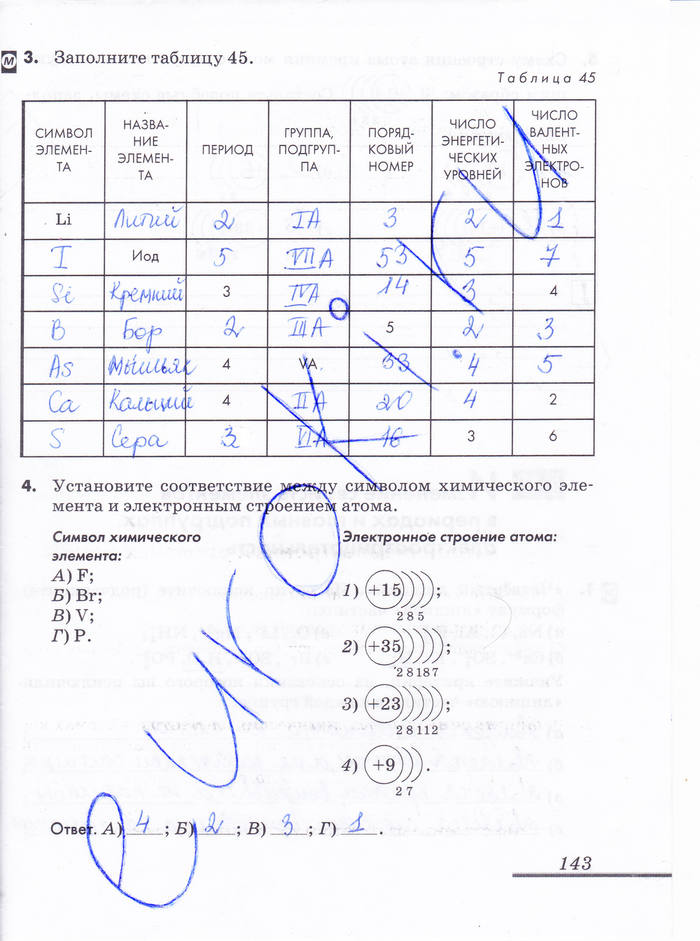 М 3. Заполните таблицу 45.
Таблица 45
СИМВОЛ ЭЛЕМЕН-ТА НАЗВА-НИЕ ЭЛЕМЕН-ТА ПЕРИОД ГРУППА, ПОДГРУП-ПА ПОРЯД-КОВЫЙ НОМЕР ЧИСЛО ЭНЕРГЕТИ-ЧЕСКИХ УРОВНЕЙ ЧИСЛО ВАЛЕНТ-НЫХ ЭЛЕКТРО-НОВ
Li Литий 2 IA 3 2 1
I Иод 5 VIIA 53 5 7
Si Кремний 3 IVA 14 3 4
B Бор 2 IIIA 5 2 3
As Мышьяк 4 VA 33 4 5
Ca Кальций 4 IIA 20 4 2
S Сера 3 VIA 16 3 6
4. Установите соответствие между символом химического эле-
мента и электронным строением атома.
Символ химического
элемента:
А) F;
Б) Br;
В) V;
Г) P.
Электронное строение атома:
1) +15 ;
2 8 5
2) +35 ;
2 8 18 7
3) +23 ;
2 8 11 2
4) +9 .
2 7
Ответ. А) 4 ; Б) 2 ; В) 3 ; Г) 1 .
143